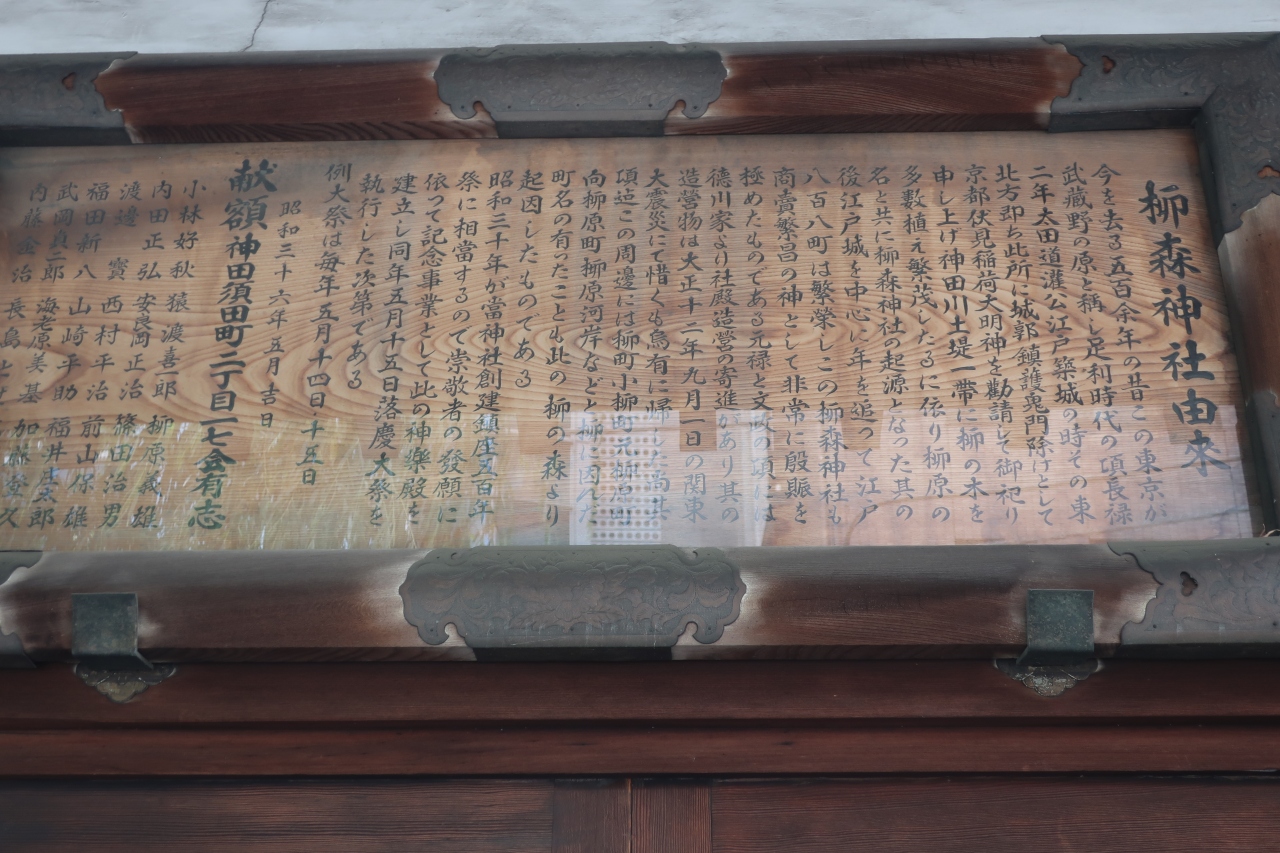 柳森神社由來
今を去る五百余年の昔この東京が
武蔵野の原と稱し足利時代の項長禄
二年太田道灌公江戸築城の時その東
北方即ち此所に城郭鎮護鬼門除けとして
京都伏見稲荷大明神を勸請して御祀り
申し上げ神田川土堤一帯に柳の木を
多數植え繁茂したるに依り柳原の
名と共に柳森神社の起源となった其の
後江戸城を中心に年を追って江戸
八百八町は繁榮しこの柳森神社も
商賣繁昌の神として非常に殷賑を
極めたものである元禄と文政の頃には
徳川家より社殿造營の寄進があり其の
造營物は大正十二年九月一日の関東
大震災にて惜くも烏有に帰した尚其
項迠この周邊には柳町小柳町元柳原町
向柳原町柳原河岸などと柳に因んだ
町名の有ったことも此の柳の森より
起因したものである
昭和三十年が當神社創建鎮座五百年
祭に相當するので崇敬者の發願に
依って記念事業として此の神樂殿を
建立し同年五月十五日落慶大祭を
執行した次第である
例大祭は毎年五月十四日・十五日
昭和三十六年五月吉日
献額 神田須田町二丁目一七会有志
小林好秋 猿渡喜郎 柳原義雄
内田正弘 安長岡正治 篠田治男
渡邊寳 西村平治 前山保雄
福田新八 山崎平助 福井圭郎
武岡真二郎 海老原美基 加藤
内藤金治 長鳥